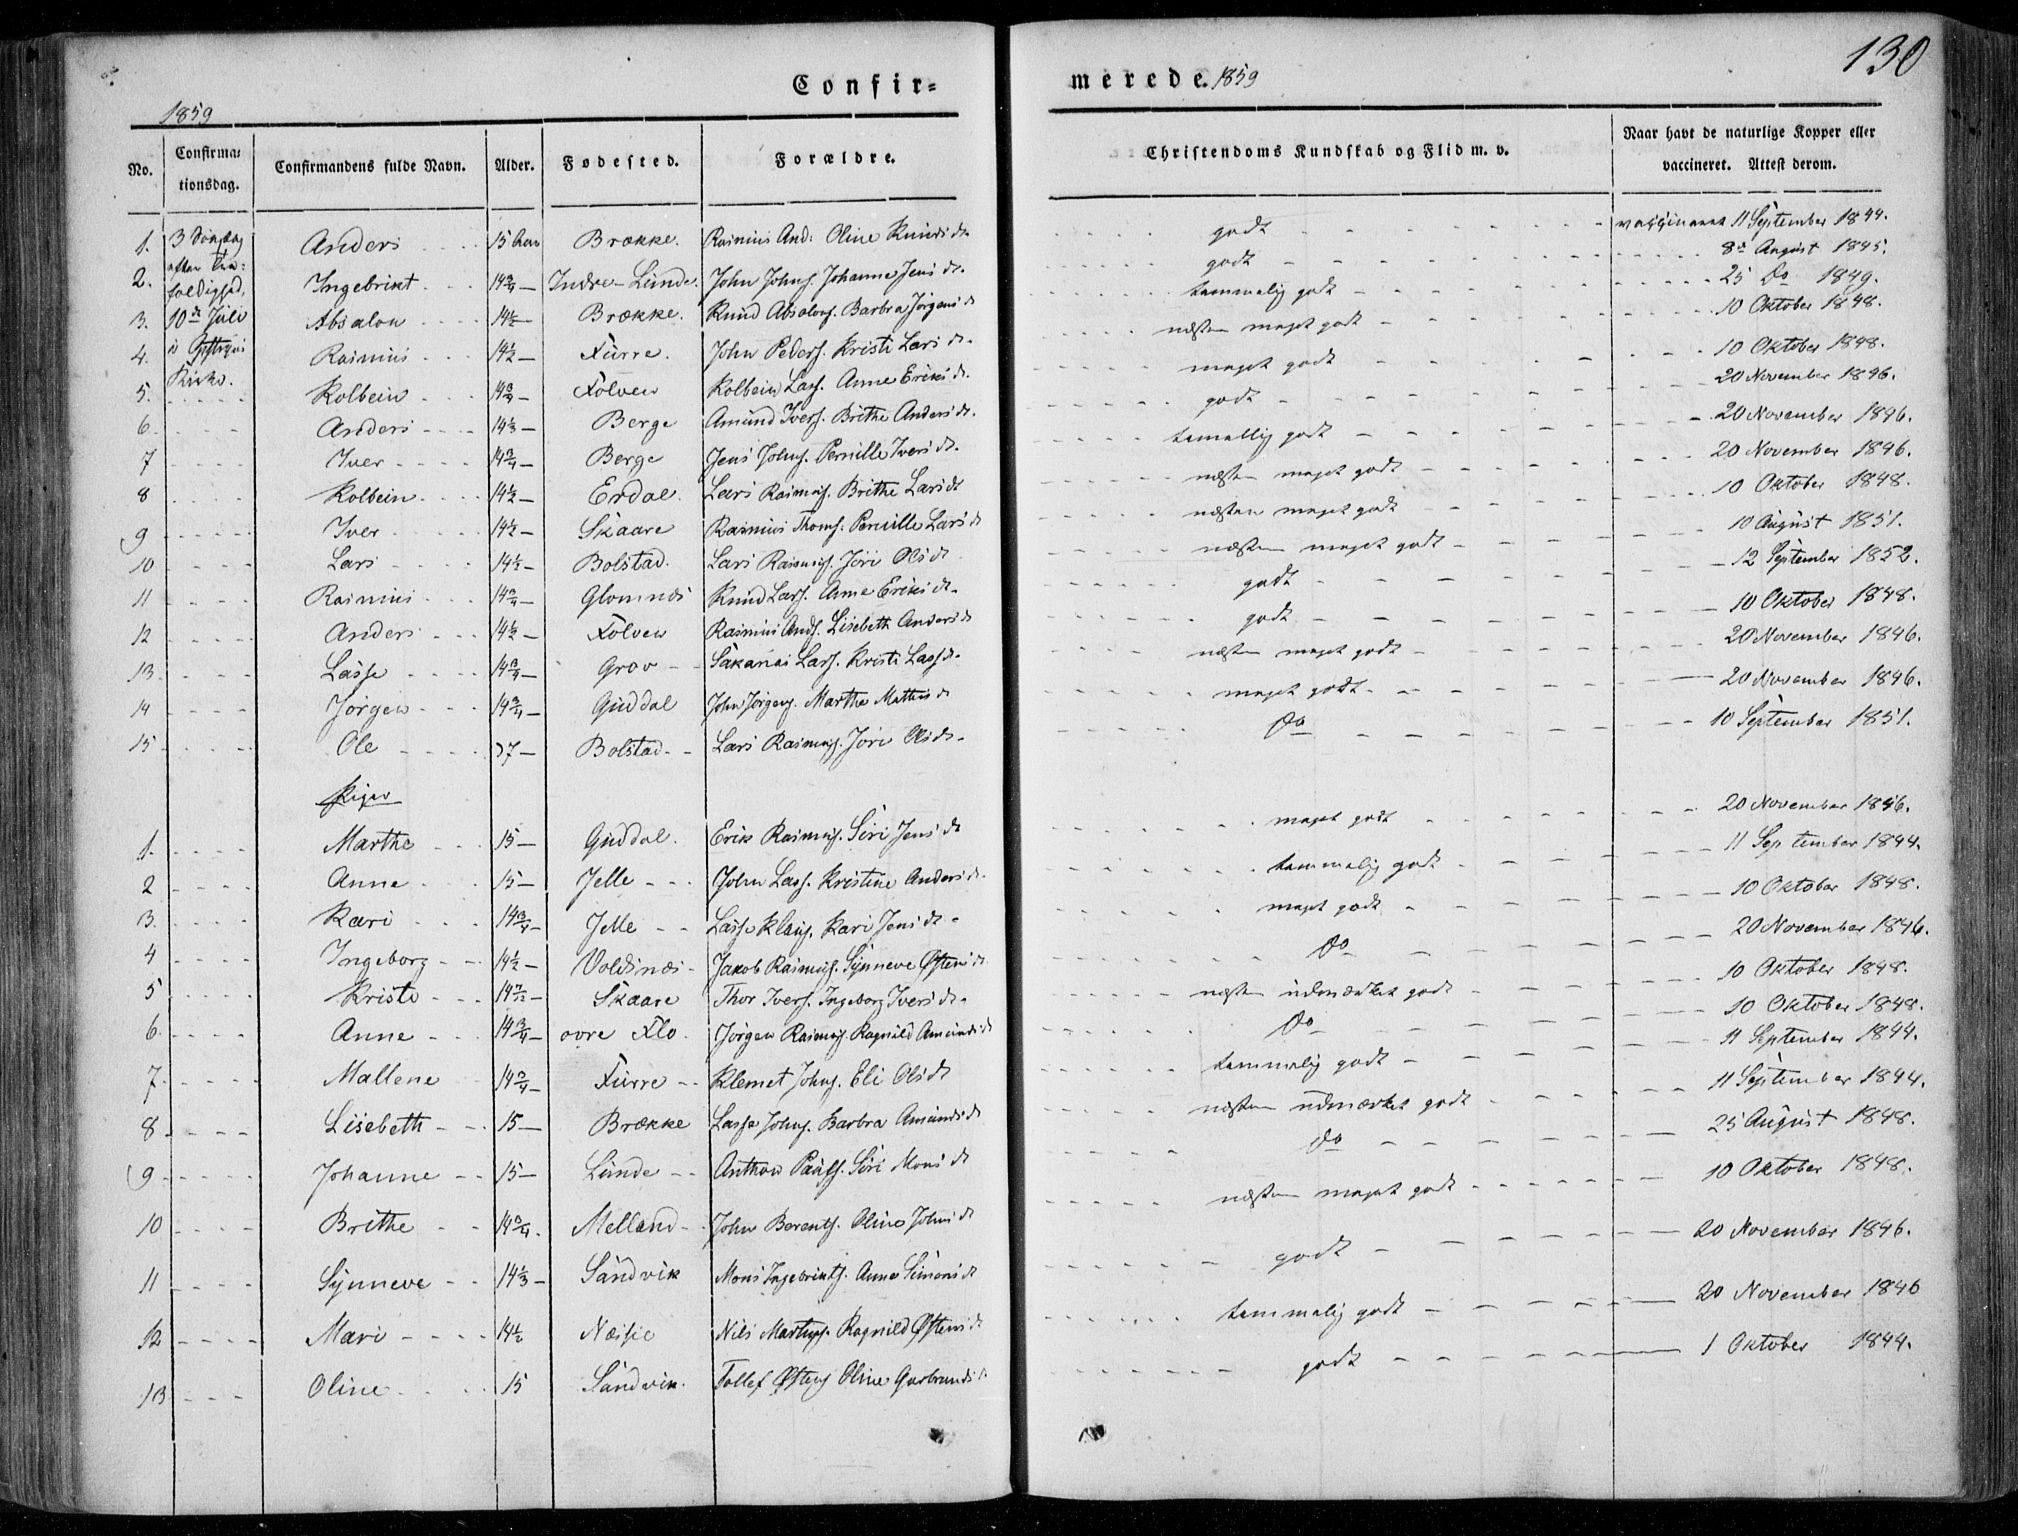 130
Confirmerede. 1859
1859
No. Confirmationsdag. Confirmandens fulde Navn. Alder. Fødested. Forældre. Christendoms Kundskab og Flid m. v. Naar havt de naturlige Kopper eller vaccineret. Attest derom.
3 Søndag
efter
10de Juli
Kirke.
1. Anders 15 Aar Brække. Rasmus And: Oline Knudsdt. godt vaccineret 11 September 1844.
2. Ingebrikt 14 3/4 Indre-Lunde. John Johns. Johanne Jensdt. godt 8de August 1845.
3. Absalon 14 1/2 Brække. Knud Absalons. Barbra Jørgensdt tammelig godt 25 Do 1849.
4. Rasmus 14 1/2 Furre. John Peders. Kristi Larsdt. næsten meget godt 10 Oktober 1848.
5. Kolbein 14 3/4 Folven Kolbein Lass. Anne Eriksdt. meget godt 10 Oktober 1848.
6. Anders 14 1/3 Berge Amund Ivers. Brithe Andersdt. godt 20 November 1846.
7 Iver 14 3/4 Berge Jens Johns. Pernille Iversdt. tamellig godt 20 November 1846.
8 Kolbein 14 1/2 Erdal. Lars Rasmus. Brithe Larsdt næsten meget godt 20 November 1846.
9 Iver 14 1/2 Skaare Rasmus Thoms. Pernille Larsdt næsten meget godt 10 Oktober 1848.
10 Lars 14 1/2 Bolstad. Lars Rasmus. Jøri Olsdt næsten meget godt 10 August 1851.
11 Rasmus 14 3/4 Glomnes Knud Lars. Anne Eriksdt. godt 12 September 1852.
12 Anders 14 1/2 Folven Rasmus Ands. Lisebeth Andersdt godt 10 Oktober 1848.
13. Lasse 14 3/4 Grov Sakarias Lars. Kristi Lassdt. næsten meget godt 20 November 1846.
14 Jørgen 14 3/4 Guddal John Jørgens. Marthe Mathisdt meget godt 20 November 1846.
15 Ole 37 Bolstad Lars Rasmus. Jøri Olsdt. Do 10 September 1851.
Piger
1. Marthe 15 Guddal. Erik Rasmus. Siri Jensdt meget godt 20 November 1846.
2 Anne 15 Jelle John Lass. Kristine Andersdt. tammelig godt 11 September 1844.
3. Kari 14 3/4 Jelle Lasse Klaus. Kari Jensdt meget godt 10 Oktober 1848.
4 Ingeborg 14 1/2 Voldsnes Jakob Rasmus. Synneve Østensdt Do 20 November 1846.
5 Kristi 14 7/12 Skaare Thor Ivers. Ingeborg Iversdt. næsten udmærket godt 10 Oktober 1848.
6. Anne 14 3/4 øvre Flo. Jørgen Rasmus. Ragnild Amundsdt Do 10 Oktober 1848.
7. Mallene 14 3/4 Furre Klemet Johns. Eli Olsdt tammelig godt 11 September 1844.
8 Lisebeth 15 Brække Lasse Johns. Barbra Amundsdt næsten udmærket godt 11 September 1844.
9 Johanne 15 Lunde Anthon Pauls. Siri Monsdt Do 25 August 1848.
10 Brithe 14 3/4 Melland John Berents. Oline Johnsdt næsten meget godt 10 Oktober 1848.
11 Synneve 14 1/3 Sandvik Mons Ingebrikts. Anne Simonsdt godt 20 November 1846.
12 Mari 14 1/2 Næsje Nils Martins. Ragnild Østensdt tammelig godt 20 November 1846
13 Oline 15 Sandvik. Tollef Østens Oline Garbrandsdt godt 1 Oktober 1844.